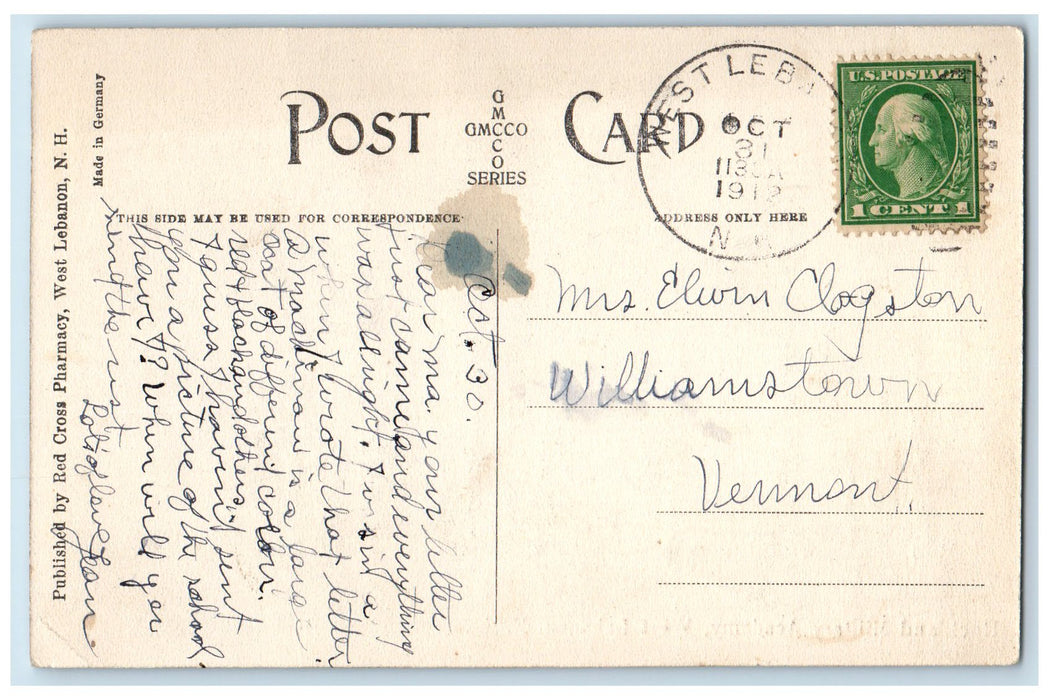 Published by Red Cross Pharmacy, West Lebanon, N. H.
Made in Germany
POST CARD
GMCCO
GMCCO
SERIES
THIS SIDE MAY BE USED FOR CORRESPONDENCE
ADDRESS ONLY HERE
WEST LEB
OCT
31
1130A
1912
N.H.
U.S. POSTAGE
1 CENT 1
Oct. 30.
Dear ma. your letter
just came and everything
was allright. I was in a
when I wrote that letter
a mackinaw is a large
coat of differint color.
red & black and others.
I guess I havint sent
you a picture of the school.
have I? When will you
send the rest
Lots of love Glan.
Mrs. Elwin Clogston
Williamstown
Vermont.